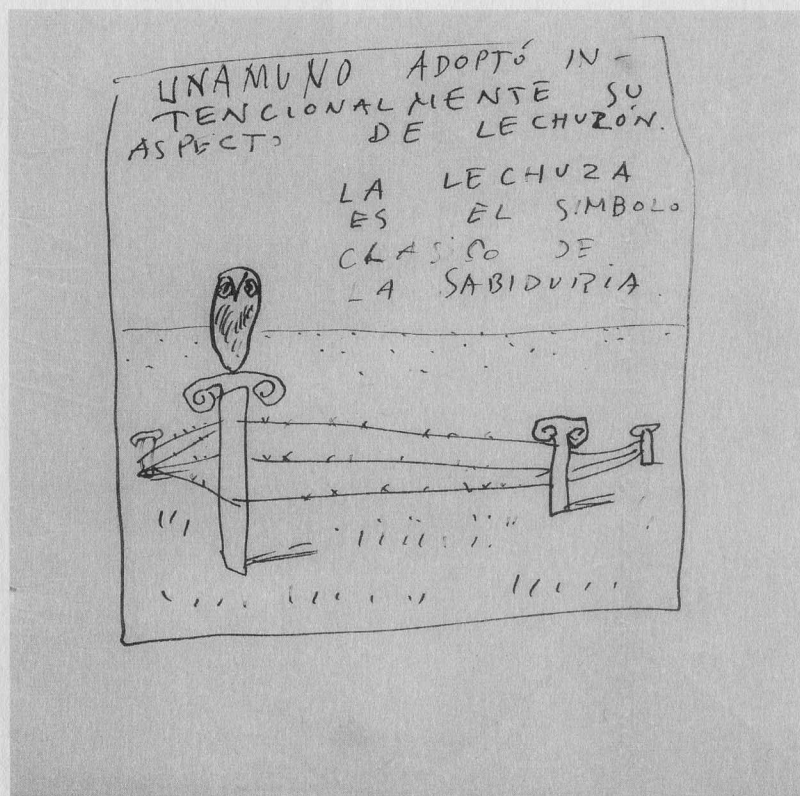 UNAMUNO ADOPTÓ IN-
TENCIONALMENTE SU
ASPECTO DE LECHUZÓN.
LA LECHUZA
ES EL SIMBOLO
CLASICO DE
LA SABIDURIA.